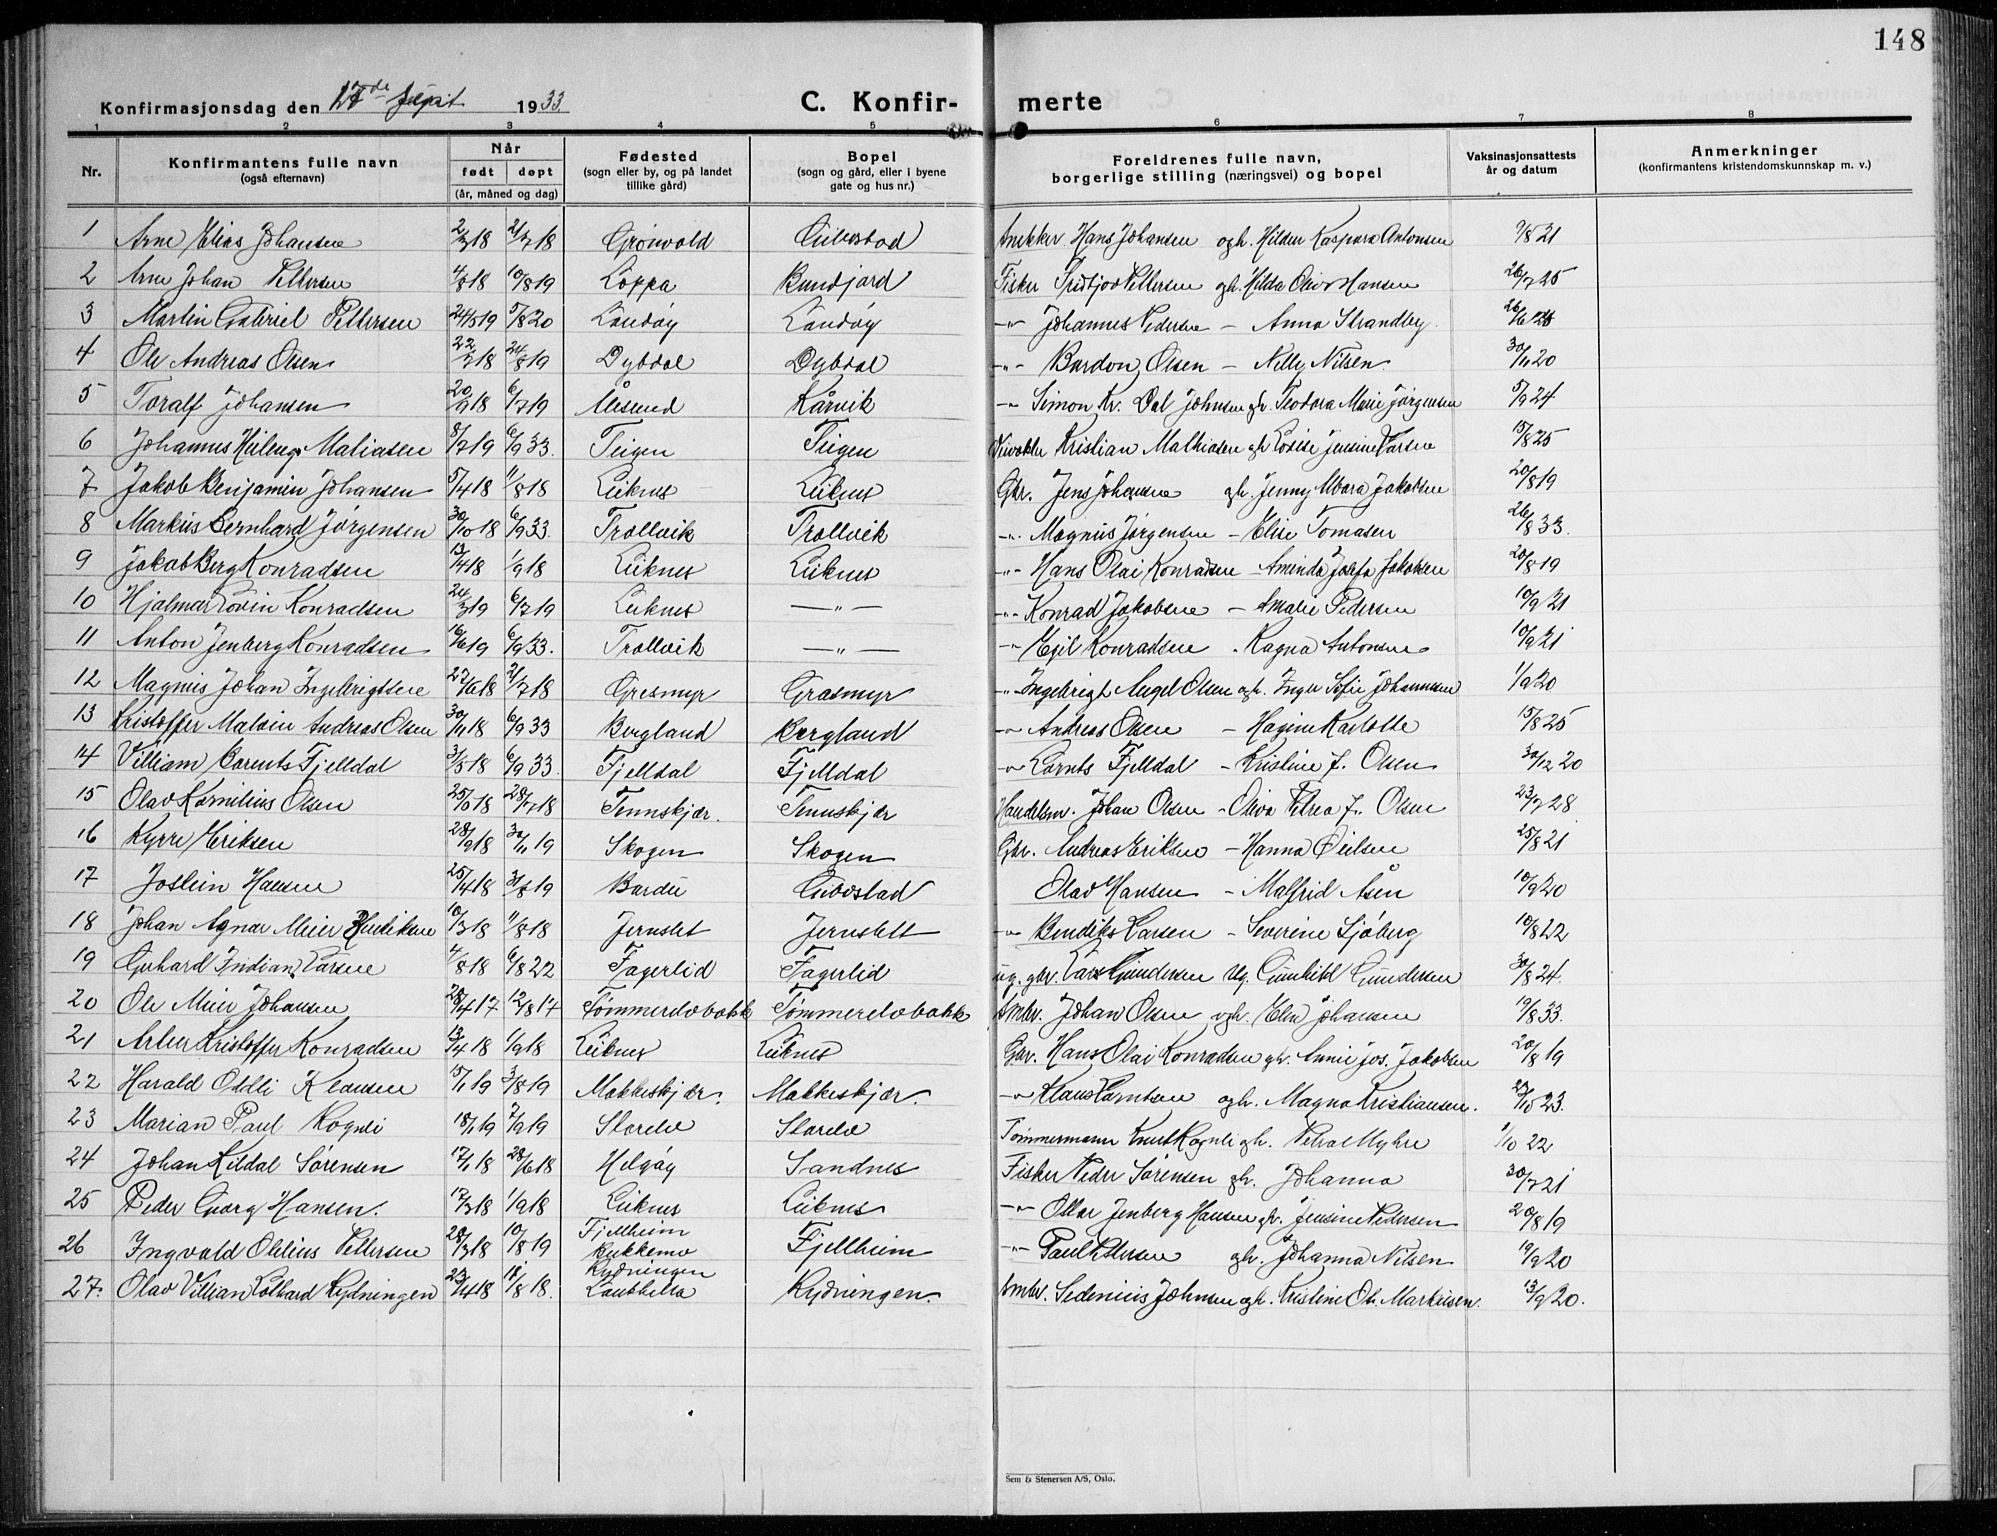 148
Konfirmasjonsdag den 17de Sept 1933.
C. Konfir- merte
1 2 3 4 5 6 7 8
Nr. Konfirmantens fulle navn (også efternavn) Når født døpt (år, måned og dag) Fødested (sogn eller by, og på landet tillike gård) Bopel (sogn og gård, eller i byene gate og hus nr.) Foreldrenes fulle navn, borgerlige stilling (næringsvei) og bopel Vaksinasjonsattests år og datum Anmerkninger (konfirmantens kristendomskunnskap m. v.)
1 Arne Elias Johansen 2/3 18 21/7 18 Grønvold Gibostad Snekker Hans Johansen ogh. Hilder Kaspara Antonsen 21
2 Arne Johan Pettersen 4/8 18 10/8 19 Loppa Bundjord Fisker Fridtjov Pettersen gh. Hilda Hansen 26/7 25
3 Martin Gabriel Pettersen 24/5 19 5/8 20 Landøy Landøy -"- Johannes Pedersen - Anna Strandby
4 Ole Andreas Olsen 22/7 18 24/8 19 Dybdal Dybdal -"- Bardon Olsen - Nelly Nilsen 30/11 20
5 Toralf Johansen 20/9 18 6/7 19 Ålesund Kårvik -"- Simon Kr. Dal Johnsen gh. Teodora Marie Jørgensen 5/9 24
6 Johannes Matiasen 8/7 19 6/9 33. Teigen Teigen Kristian Mathiasen gh Lovise Jensine Larsen 15/8 25
7 Jakob Benjamin Johansen 5/4 18 11/8 18 Leiknes Leiknes Gbr. Jens Johansen gh. Jenny Jakobsen 20/8 19
8 Markus Bernhard Jørgensen 30/10 18 6/9 33. Trollvik Trollvik -"- Magnus Jørgensen - Elise Tomasen 26/8 33.
9 Jakob Berg Konradsen 13/4 18 1/9 18 Leiknes Leiknes -"- Hans Olai Konradsen - Aminda Josefa Jakobsen 20/8 19
10 Hjalmar Konradsen 24/3 19 6/7 19 Leiknes -"- -"- Konrad Jakobsen - Amalie Pedersen 10/9 21
11 Anton Jenberg Konradsen 16/6 19 6/9 33. Trollvik -"- -"- Egil Konradsen - Ragna Antonsen 10/9 21
12 Magnus Johan Ingebrigtsen 27/6 18 21/7 18 Gresmyr Grasmyr -"- Ingebrigt Angel Olsen ogh. Inger Sofie Johannesen 1/9 20
13 Kristoffer Malvin Andreas Olsen 30/11 18 6/9 33 Bergland Bergland -"- Andreas Olsen - Hagine Karlotte 15/8 25
14 Villiam Barents Fjelldal 31/5 18 6/9 33. Fjelldal Fjelldal -"- Fjelldal - Kristine J. Olsen 30/12 20
15 Olav Kornilius Olsen 18 28/7 18 Tennskjær. Tennskjær Handelsm. Johan Olsen - Oliva Petrea J. Olsen 23/7 28
16 Kyrre Eriksen 28/9 18 30/11 19 Skogen Skogen Gbr. Andreas Eriksen - Hanna Øeilsen 25/8 21
17 Jostein Hansen 25/4 18 31/8 19 Bardu Gibostad Olav Hansen - Malfrid Åsen 10/9 20
18 Johan Agnar Meier 10/3 18 11/8 18 Jernslet Jernslett -"- Bendiks Larsen - Severine Sjøberg 10/8 22
19 Gerhard Larsen 4/8 18 6/8 22 Fagerlid Fagerlid ug. gbr. Lars Gundersen ug. Gunhild Gundersen 30/8 24.
20 Ole Meier Johansen 28/4 17 12/8 17 Tømmerelvbakk Tømmerelvbakk Småbr. Johan Olsen ogh. Elen Johansen 19/8 33.
21 Artur Kristoffer Konradsen 13/4 18 1/9 18 Leiknes Leiknes Gbr. Hans Olai Konradsen gh. Annie Jos. Jakobsen 20/8 19
22 Harald Klausen 15/1 19 3/8 19 Mokkeskjær. Mokkeskjær. -"- Klaus Berntsen ogh. Magna Kristiansen. 23/10 23.
23 Marian Paul Rognli 18/1 19 7/9 19 Storelv Storelv Tømmermann Knut Rognli gh. Petra Myhre 1/10 22
24 Johan Kildal Sørensen 17/1 18 28/6 18 Helgøy Sandnes Fisker Peder Sørensen gh. Johanna 30/7 21
25 Peder Georg Hansen. 17/3 18 1/9 18 Leiknes Leiknes -"- Ottar Jenberg Hansen gh. Jensine Pedersen 20/8 19
26 Ingvald Othlius Pettersen 28/3 18 10/8 19 Fjellheim Bukkemo Fjellheim -"- Paul Petersen gh. Johanna Nilsen 19/9 20
27. Olav Villian Lothard Rydningen 23/4 18 11/8 18. Rydningen Laukhella Rydningen. Småbr. Sedenius Johnsen ogh. Kristine Ot. Markusen. 13/9 20.
Sem & Stenersen A/S, Oslo.